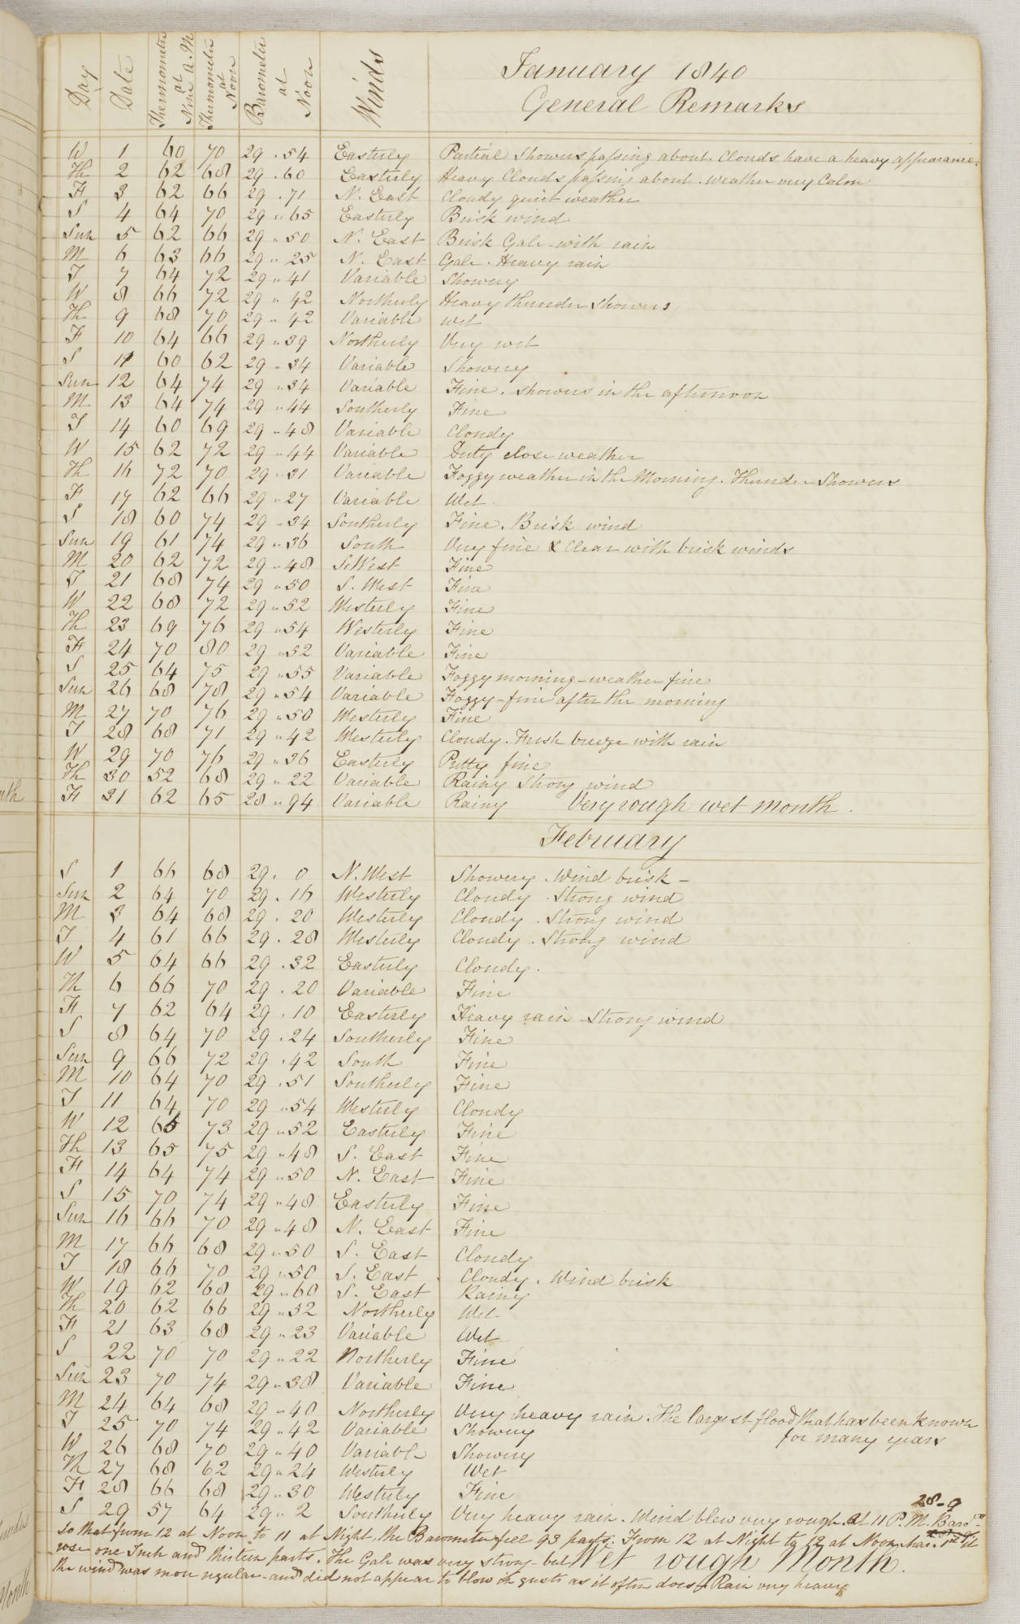 Day Date Thermometer at Nine A.M Thermometer at Noon Barometer at Noon Winds January 1840
General Remarks
W 1 60 70 29 . 54 Easterly Partial Showers passing about. Clouds have a heavy appearance.
Th 2 62 68 29 . 60 Easterly Heavy Clouds passing about. weather very Calm
F 3 62 66 29 . 71 N. East Cloudy quiet weather
S 4 64 70 29 " 65 Easterly Brisk wind
Sun 5 62 66 29 " 50 N. East Brisk Gale with rain
M 6 63 66 29 " 25 N. East Gale. Heavy rain
T 7 64 72 29 " 41 Variable Showery
W 8 66 72 29 " 42 Northerly Heavy thunder Showers
Th 9 68 70 29 " 42 Variable wet
F 10 64 66 29 " 39 Northerly Very wet
S 11 60 62 29 " 34 Variable Showery
Sun 12 64 74 29 " 34 Variable Fine. showers in the afternoon
M 13 64 74 29 " 44 Southerly Fine
T 14 60 69 29 " 48 Variable Cloudy
W 15 62 72 29 " 44 Variable Duty close weather
Th 16 72 70 29 " 31 Variable Foggy weather in the Morning. Thunder Showers
F 17 62 66 29 " 27 Variable Wet
S 18 60 74 29 " 34 Southerly Fine. Brisk wind
Sun 19 61 74 29 " 36 South Very fine & Clear with brisk winds
M 20 62 72 29 " 48 S. West Fine
T 21 68 74 29 " 50 S. West Fine
W 22 68 72 29 " 52 Westerly Fine
Th 23 69 76 29 " 54 Westerly Fine
F 24 70 80 29 " 52 Variable Fine
S 25 64 75 29 " 55 Variable Foggy morning - weather fine
Sun 26 68 78 29 " 54 Variable Foggy - fine after the morning
M 27 70 76 29 " 50 Westerly Fine
T 28 68 71 29 " 42 Westerly Cloudy. Fresh breeze with rain
W 29 70 76 29 " 36 Easterly Pretty fine
Th 30 52 68 29 " 22 Variable Rainy Strong wind
F 31 62 65 28 " 94 Variable Rainy Very rough wet month.
February
S 1 66 68 29 . 0 N. West Showery. Wind brisk -
Sun 2 64 70 29 . 16 Westerly Cloudy Strong wind
M 3 64 68 29 . 20 Westerly Cloudy. Strong wind
T 4 61 66 29 . 28 Westerly Cloudy. Strong wind
W 5 64 66 29 . 32 Easterly Cloudy.
Th 6 66 70 29 . 20 Variable Fine
F 7 62 64 29 . 10 Easterly Heavy rain Strong wind
S 8 64 70 29 . 24 Southerly Fine
Sun 9 66 72 29 . 42 South Fine
M 10 64 70 29 . 51 Southerly Fine
T 11 64 70 29 " 54 Westerly Cloudy
W 12 65 73 29 " 52 Easterly Fine
Th 13 65 75 29 " 48 S. East Fine
F 14 64 74 29 " 50 N. East Fine
S 15 70 74 29 " 48 Easterly Fine
Sun 16 66 70 29 " 48 N. East Fine
M 17 66 68 29 " 50 S. East Cloudy
T 18 66 70 29 " 50 S. East Cloudy. Wind brisk
W 19 62 68 29 " 60 S. East Rainy
Th 20 62 66 29 " 52 Northerly Wet
F 21 63 68 29 " 23 Variable Wet
S 22 70 70 29 " 22 Northerly Fine
Sun 23 70 74 29 " 38 Variable Fine
M 24 64 68 29 " 40 Northerly Very heavy rain. The largest flood that has been known
T 25 70 74 29 " 42 Variable Showery for many years
W 26 68 70 29 " 40 Variable Showery
Th 27 68 62 29 " 24 Westerly Wet
F 28 66 68 29 " 30 Westerly Fine
28 - 9
S 29 57 64 29 " 2 Southerly Very heavy rain. Wind blew very rough. at 11 P.M. Baro.
So that from 12 at Noon to 11 at Night the Barometer feel 93 parts. From 12 at Night to 12 at Noon Mar. 1st it
rose one Inch and thirteen parts. The Gale was very strong but Wet rough Month.
the wind was more regular and did not appear to blow in gusts as it often does. Rain very heavy